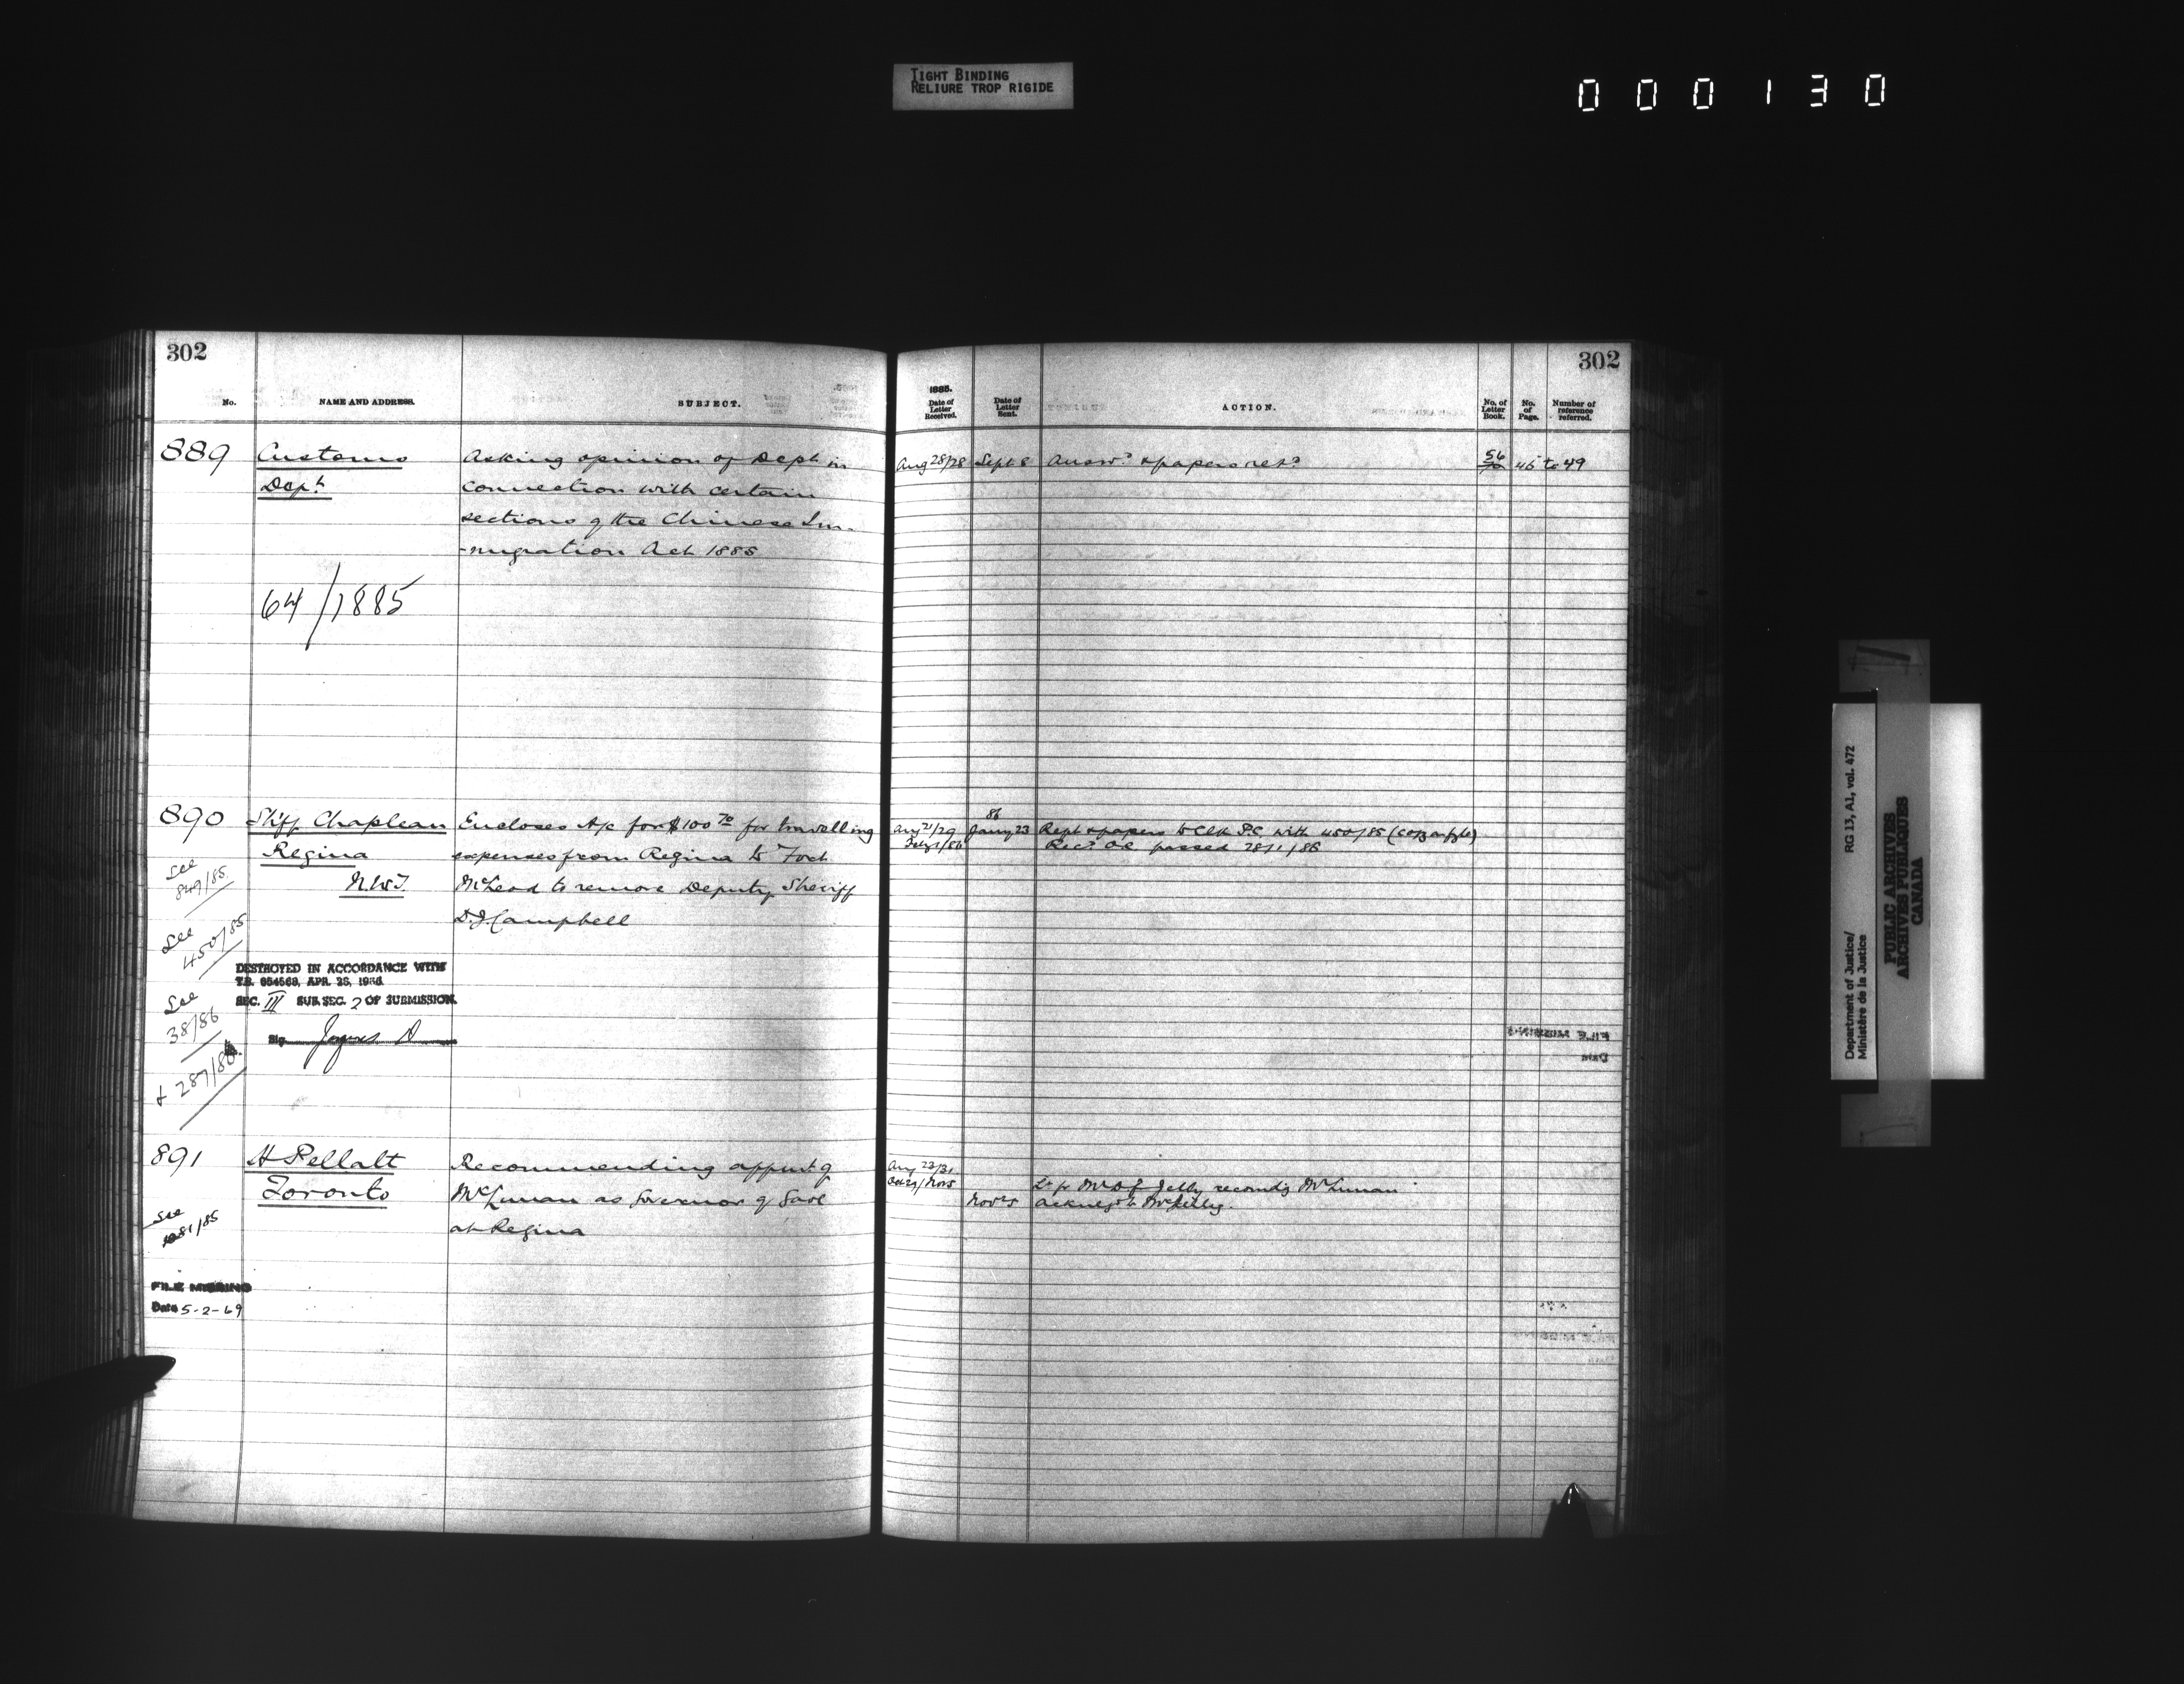 TIGHT BINDING
RELIURE TROP RIGIDE
000130
302
No.
NAME AND ADDRESS.
SUBJECT.
889
Customs
Dept
Asking opinion of Dept in
connection with certain
sections of the Chinese Im-
-migration Act 1885
64/1885
890
Shff Chapleau
Regina
N.W.T.
Encloses A/c for $100 70 for travelling
expenses from Regina to Fort
McLeod to remove Deputy Sheriff
D.J. Campbell
See
849/85
See
450/85
See
38/86
& 287/86
DESTROYED IN ACCORDANCE WITH
T.B. 654563, APR. 25, 19
SEC. III SUB SEC. 2 OF SUBMISSION.
Sig.
891
H Pellatt
Toronto
Recommending appmt of
as Governor of Gaol
at Regina
See
81/85
FILE MISSING
Date 5-2-69
302
1885.
Date of
Letter
Received.
Date of
Letter
Sent.
ACTION.
No. of
Letter
Book.
No.
of
Page.
Number of
reference
referred.
Aug 28/28 Sept 8 Answd & papers retd 56 45 to 49
86
Aug 21/29 Jany 23 Rept & papers to Clk P.C. with 450/85
Recd O.C. passed 28/1/86
Aug 23/31
Oct 29/Nov 5
Nov 5
FILE MISSING
Date
Department of Justice/
Ministère de la Justice
RG 13, A1, vol. 472
PUBLIC ARCHIVES
ARCHIVES PUBLIQUES
CANADA